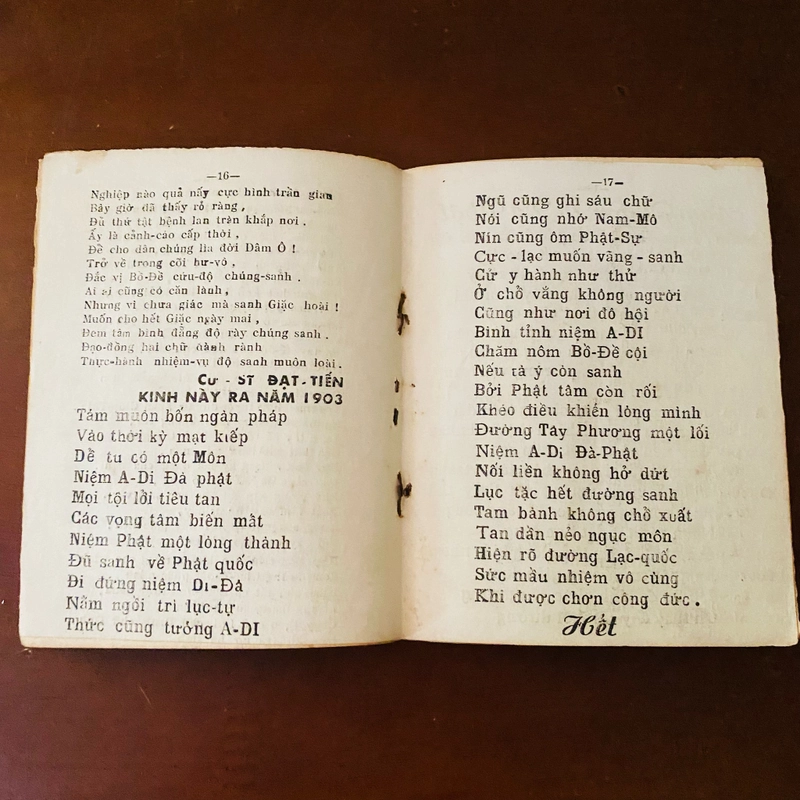 —16—
Nghiệp nào quả nấy cực hình trần gian
Bây giờ đã thấy rỏ ràng,
Đủ thứ tật bệnh lan trên khắp nơi.
Ấy là cảnh-cáo cấp thời,
Để cho dân chúng lìa đời Dâm Ô!
Trở về trong cõi hư-vô,
Đắc vị Bồ-Đề cứu-độ chúng-sanh.
Ai ai cũng có căn lành,
Nhưng vì chưa giác mà sanh Giặc hoài!
Muốn cho hết Giặc ngày mai,
Đem tâm bình đẳng độ rày chúng sanh.
Đạo-đồng hai chữ đành rành
Thực-hành nhiệm-vụ độ sanh muôn loài.
CƯ-SĨ ĐẠT-TIẾN
KINH NÀY RA NĂM 1903
Tám muôn bốn ngàn pháp
Vào thời kỳ mạt kiếp
Đề tu có một Môn
Niệm A-Di Đà phật
Mọi tội lỗi tiêu tan
Các vọng tâm biến mất
Niệm Phật một lòng thành
Đũ sanh về Phật quốc
Đi đứng niệm Di-Đà
Nằm ngồi trì lục-tự
Thức cũng tưởng A-DI
—17—
Ngũ cũng ghi sáu chữ
Nói cũng nhớ Nam-Mô
Nín cũng ôm Phật-Sự
Cực-lạc muốn vãng-sanh
Cứ y hành như thử
Ở chỗ vắng không người
Cũng như nơi đô hội
Bình tỉnh niệm A-DI
Chăm nôm Bồ-Đề cội
Nếu tà ý còn sanh
Bởi Phật tâm còn rối
Khéo điều khiến lòng mình
Đường Tây Phương một lối
Niệm A-Di Đà-Phật
Nối liền không hở dứt
Lục tặc hết đường sanh
Tam bành không chỗ xuất
Tan dần nẻo ngục môn
Hiện rõ đường Lạc-quốc
Sức mầu nhiệm vô cùng
Khi được chơn công đức.
Hết